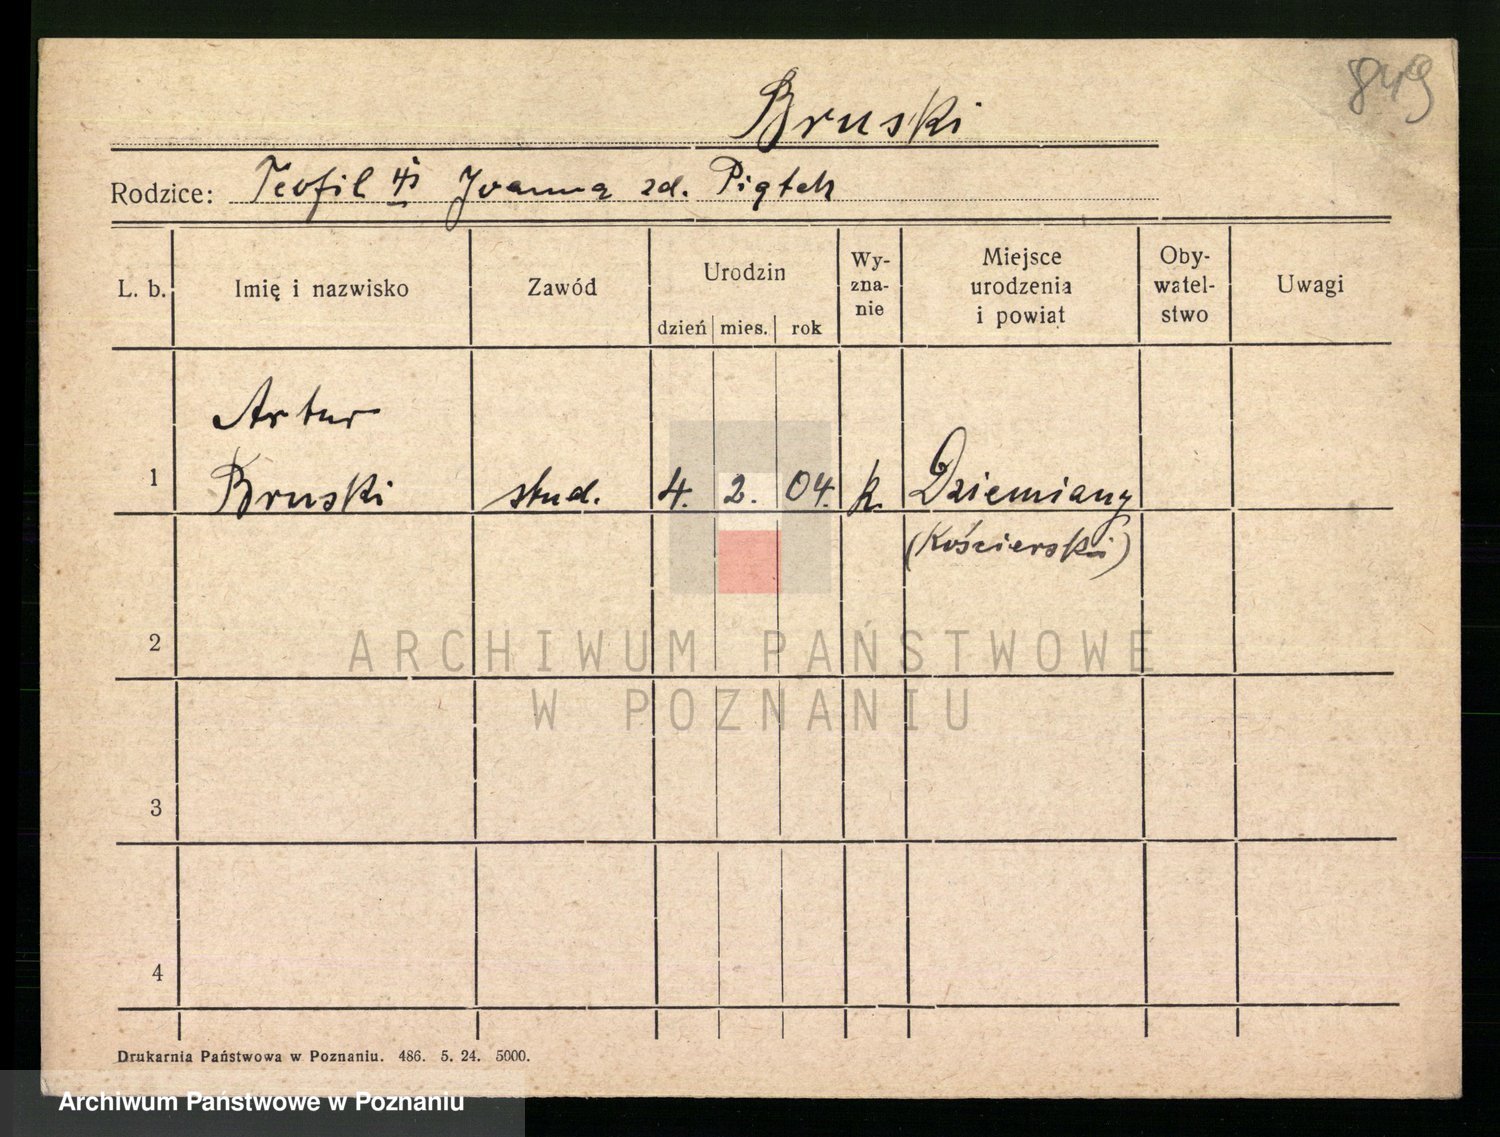 849
Bruski
Rodzice: Teofil i Joanna zd. Piątek
L. b. Imię i nazwisko Zawód Urodzin dzień mies. rok Wy-zna-nie Miejsce urodzenia i powiat Oby-watel-stwo Uwagi
Artur
1 Bruski stud. 4. 2. 04. k. Dziemiany
(Kościerski)
2
ARCHIWUM PAŃSTWOWE
W POZNANIU
3
4
Drukarnia Państwowa w Poznaniu. 486. 5. 24. 5000.
Archiwum Państwowe w Poznaniu